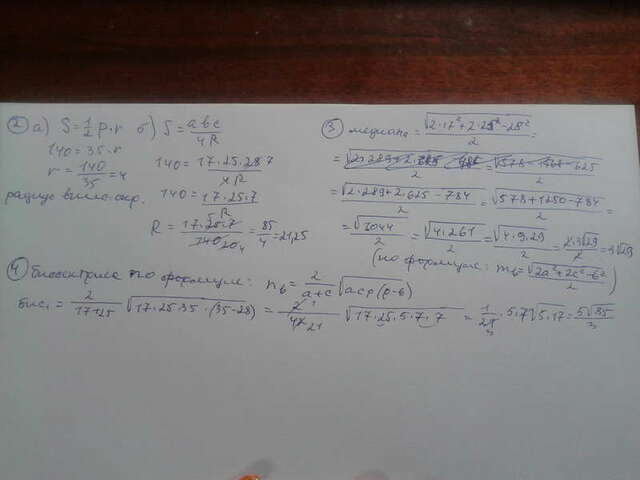 ② а) S = 1/2 p·r б) S = abc/4R
140 = 35·r 140 = 17·25·28 7/4R
r = 140/35 = 4 140 = 17·25·7/R
радиус впис. окр.
R = 17·25·7/140 = 85/4 = 21,25
③ медиана = √(2·17²+2·25²-28²)/2 =
= √(2·289+2·625-784)/2 = √(578+1250-784)/2 =
= √1044/2 = √(4·261)/2 = √(4·9·29)/2 = 2·3√29/2 = 3√29
(по формуле: m_b = √(2a²+2c²-b²)/2)
④ биссектриса по формуле: n_b = 2/(a+c) √(acp(p-b))
бис. = 2/(17+25) √(17·25·35·(35-28)) = 2 1/42 21 √(17·25·5·7·7) = 1/21 3 ·5·7√(5·17) = 5√85/3